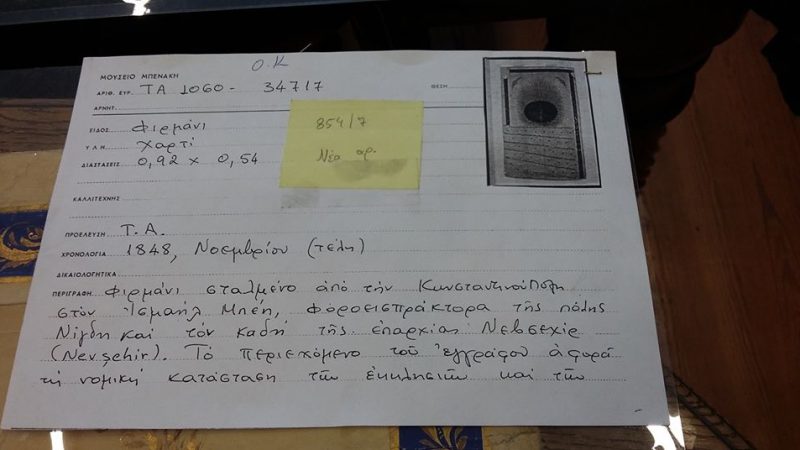 Ο.Κ
ΜΟΥΣΕΙΟ ΜΠΕΝΑΚΗ
ΑΡΙΘ. ΕΥΡ. ΤΑ 1060 - 347/7
ΘΕΣΗ
ΑΡΝΗΤ.
ΕΙΔΟΣ Φιρμάνι
ΥΛΗ Χαρτί
ΔΙΑΣΤΑΣΕΙΣ 0,92 x 0,54
854/7
Νέο αρ.
ΚΑΛΛΙΤΕΧΝΗΣ
ΠΡΟΕΛΕΥΣΗ Τ.Α.
ΧΡΟΝΟΛΟΓΙΑ 1848, Νοεμβρίου (τέλη)
ΔΙΚΑΙΟΛΟΓΗΤΙΚΑ
ΠΕΡΙΓΡΑΦΗ Φιρμάνι σταλμένο ἀπό τήν Κωνσταντινούπολη
στόν Ἰσμαήλ Μπέη, φοροεισπράκτορα τῆς πόλης
Νίγδη καί τόν καδή τῆς ἐπαρχίας Νεβσεχίρ
(Nevşehir). Τό περιεχόμενο τοῦ ἐγγράφου ἀφορᾶ
τή νομική κατάσταση τῶν ἐκκλησιῶν καί τῶν